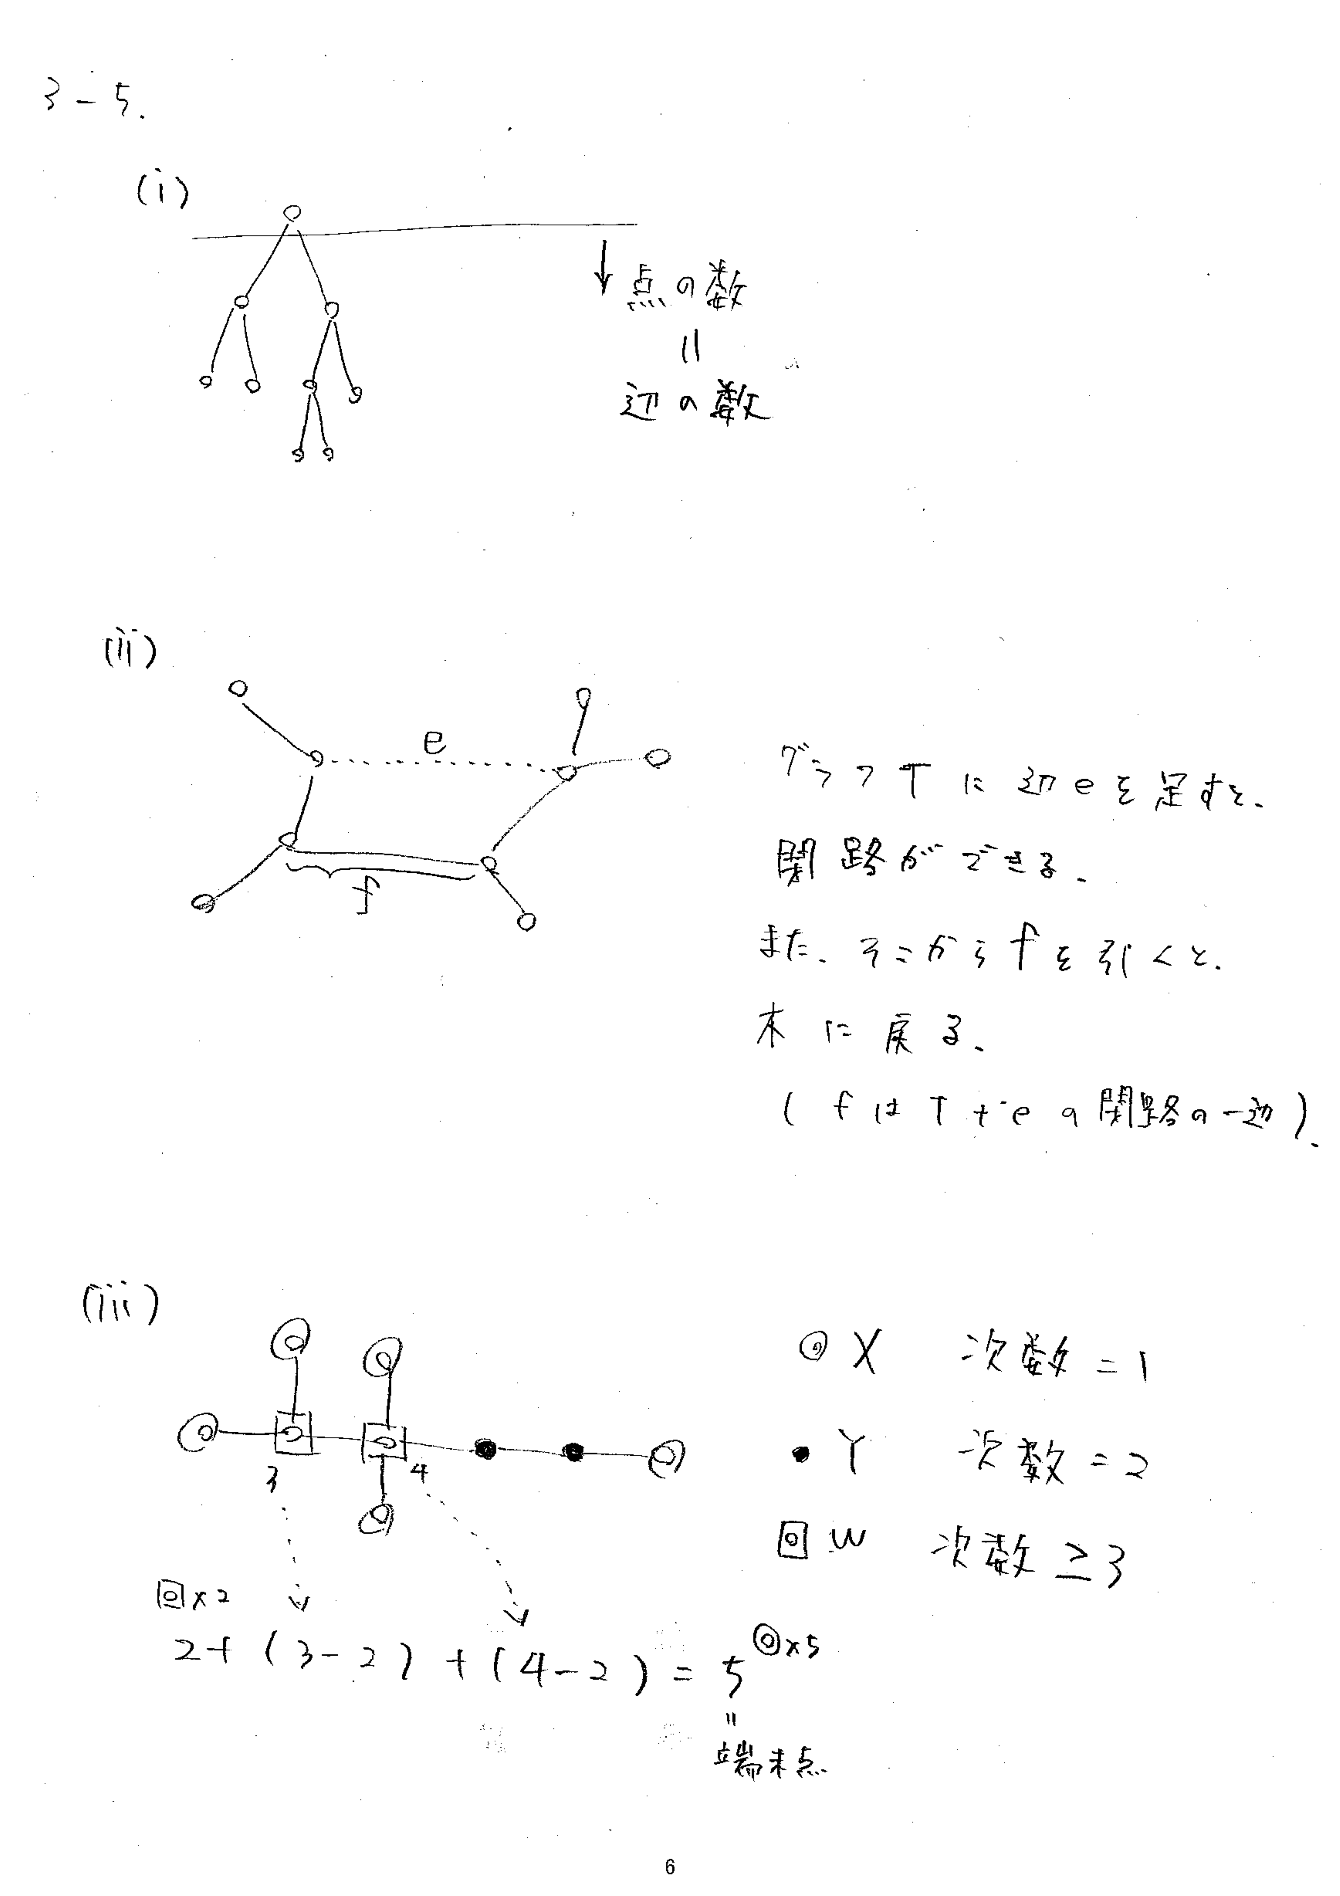 3-5.
(i)
↓ 点の数
||
辺の数
(ii)
e
f
グラフTに辺eを足すと、
閉路ができる。
また、そこからfを引くと、
木に戻る。
(fはT+eの閉路の一辺).
(iii)
◎ X 次数=1
● Y 次数=2
回 W 次数≥3
3 4
回×2
2+(3-2)+(4-2)=5 ◎×5
||
端末点
6